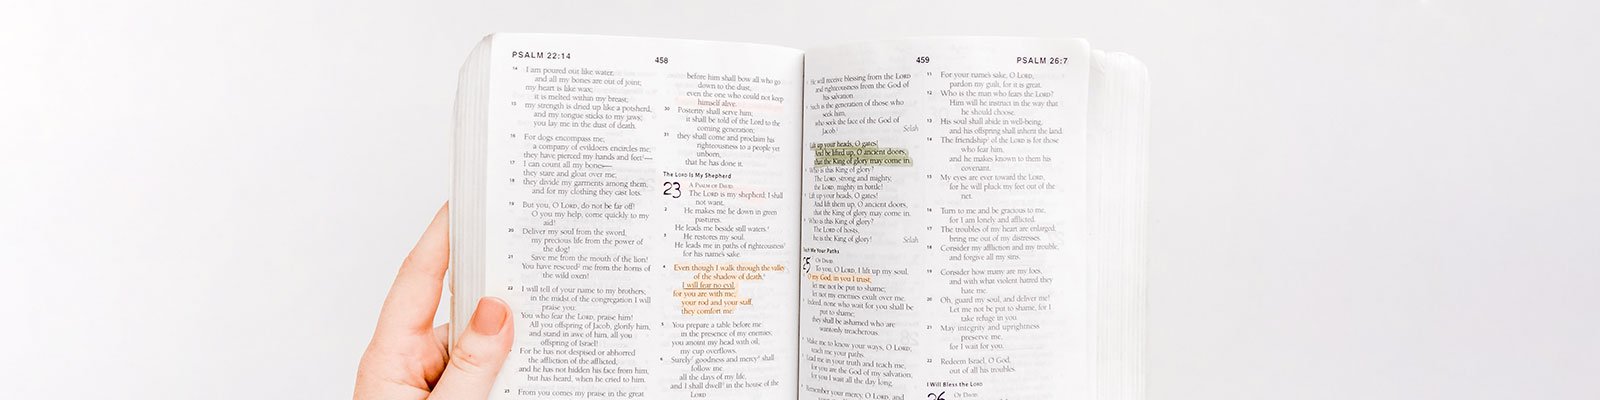 PSALM 22:14
458
14 I am poured out like water,
and all my bones are out of joint;
my heart is like wax;
it is melted within my breast;
15 my strength is dried up like a potsherd,
and my tongue sticks to my jaws;
you lay me in the dust of death.
16 For dogs encompass me;
a company of evildoers encircles me;
they have pierced my hands and feet—
17 I can count all my bones—
they stare and gloat over me;
18 they divide my garments among them,
and for my clothing they cast lots.
19 But you, O LORD, do not be far off!
O you my help, come quickly to my
aid!
20 Deliver my soul from the sword,
my precious life from the power of
the dog!
21 Save me from the mouth of the lion!
You have rescued me from the horns of
the wild oxen!
22 I will tell of your name to my brothers;
in the midst of the congregation I will
praise you:
You who fear the LORD, praise him!
All you offspring of Jacob, glorify him,
and stand in awe of him, all you
offspring of Israel!
For he has not despised or abhorred
the affliction of the afflicted,
and he has not hidden his face from him,
but has heard, when he cried to him.
25 From you comes my praise in the great
before him shall bow all who go
down to the dust,
even the one who could not keep
himself alive.
30 Posterity shall serve him;
it shall be told of the Lord to the
coming generation;
31 they shall come and proclaim his
righteousness to a people yet
unborn,
that he has done it.
The LORD Is My Shepherd
23 A PSALM OF DAVID.
The LORD is my shepherd; I shall
not want.
2 He makes me lie down in green
pastures.
He leads me beside still waters.
3 He restores my soul.
He leads me in paths of righteousness
for his name's sake.
4 Even though I walk through the valley
of the shadow of death,
I will fear no evil,
for you are with me;
your rod and your staff,
they comfort me.
5 You prepare a table before me
in the presence of my enemies;
you anoint my head with oil;
my cup overflows.
6 Surely goodness and mercy shall
follow me
all the days of my life,
and I shall dwell in the house of the
LORD
459
PSALM 26:7
He will receive blessing from the LORD
and righteousness from the God of
his salvation.
Such is the generation of those who
seek him,
who seek the face of the God of
Jacob.
Selah
Lift up your heads, O gates!
And be lifted up, O ancient doors,
that the King of glory may come in.
Who is this King of glory?
The LORD, strong and mighty,
the LORD, mighty in battle!
Lift up your heads, O gates!
And lift them up, O ancient doors,
that the King of glory may come in.
Who is this King of glory?
The LORD of hosts,
he is the King of glory!
Selah
Teach Me Your Paths
25 OF DAVID.
To you, O LORD, I lift up my soul.
O my God, in you I trust;
let me not be put to shame;
let not my enemies exult over me.
Indeed, none who wait for you shall be
put to shame;
they shall be ashamed who are
wantonly treacherous.
Make me to know your ways, O LORD;
teach me your paths.
Lead me in your truth and teach me,
for you are the God of my salvation;
for you I wait all the day long.
Remember your mercy, O LORD, and
11 For your name's sake, O LORD,
pardon my guilt, for it is great.
12 Who is the man who fears the LORD?
Him will he instruct in the way that
he should choose.
13 His soul shall abide in well-being,
and his offspring shall inherit the land.
14 The friendship of the LORD is for those
who fear him,
and he makes known to them his
covenant.
15 My eyes are ever toward the LORD,
for he will pluck my feet out of the
net.
16 Turn to me and be gracious to me,
for I am lonely and afflicted.
17 The troubles of my heart are enlarged;
bring me out of my distresses.
18 Consider my affliction and my trouble,
and forgive all my sins.
19 Consider how many are my foes,
and with what violent hatred they
hate me.
20 Oh, guard my soul, and deliver me!
Let me not be put to shame, for I
take refuge in you.
21 May integrity and uprightness
preserve me,
for I wait for you.
22 Redeem Israel, O God,
out of all his troubles.
I Will Bless the LORD
26 OF DAVID.